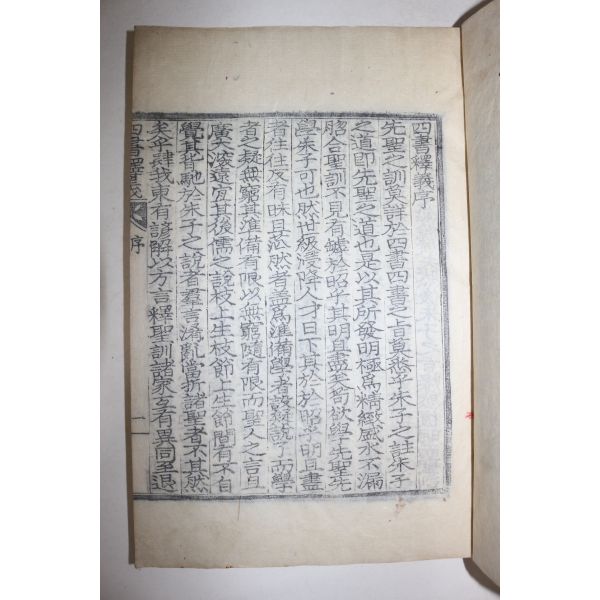 四書釋義序
先聖之訓莫詳於四書四書之旨莫悉乎朱子之註朱子
之道即先聖之道也是以其所發明極爲精經盛水不漏
脗合聖訓不見有罅於昭乎其明且盡矣苟欲學先聖先
學朱子可也然世級漫降人才日下其於於昭乎明且盡
者往往反有昧且茫然者盖爲準備學者設疑說了而學
者之疑無窮其準備有限以無窮隨有限而聖人之言自
廣大深遠宜其後儒之說枝上生枝節上生節間有不自
覺其背馳於朱子之說者羣言淆亂當折諸聖者不其然
矣乎肆我東有諺解以方言釋聖訓諸家互有異同至退
四書釋義
序
一